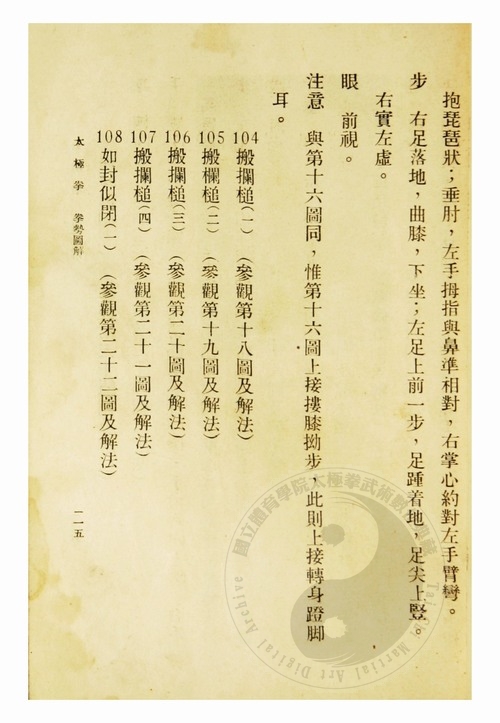 抱琵琶狀；垂肘，左手拇指與鼻準相對，右掌心約對左手臂彎。
步　右足落地，曲膝，下坐；左足上前一步，足踵着地，足尖上豎。
右實左虛。
眼　前視。
注意　與第十六圖同，惟第十六圖上接摟膝拗步，此則上接轉身蹬脚
耳。
104 搬攔槌（一）　（參觀第十八圖及解法）
105 搬攔槌（二）　（參觀第十九圖及解法）
106 搬攔槌（三）　（參觀第二十圖及解法）
107 搬攔槌（四）　（參觀第二十一圖及解法）
108 如封似閉（一）　（參觀第二十二圖及解法）
太極拳　拳勢圖解
二一五
國立體育學院太極拳武術數位
Martial Art Digital Archive